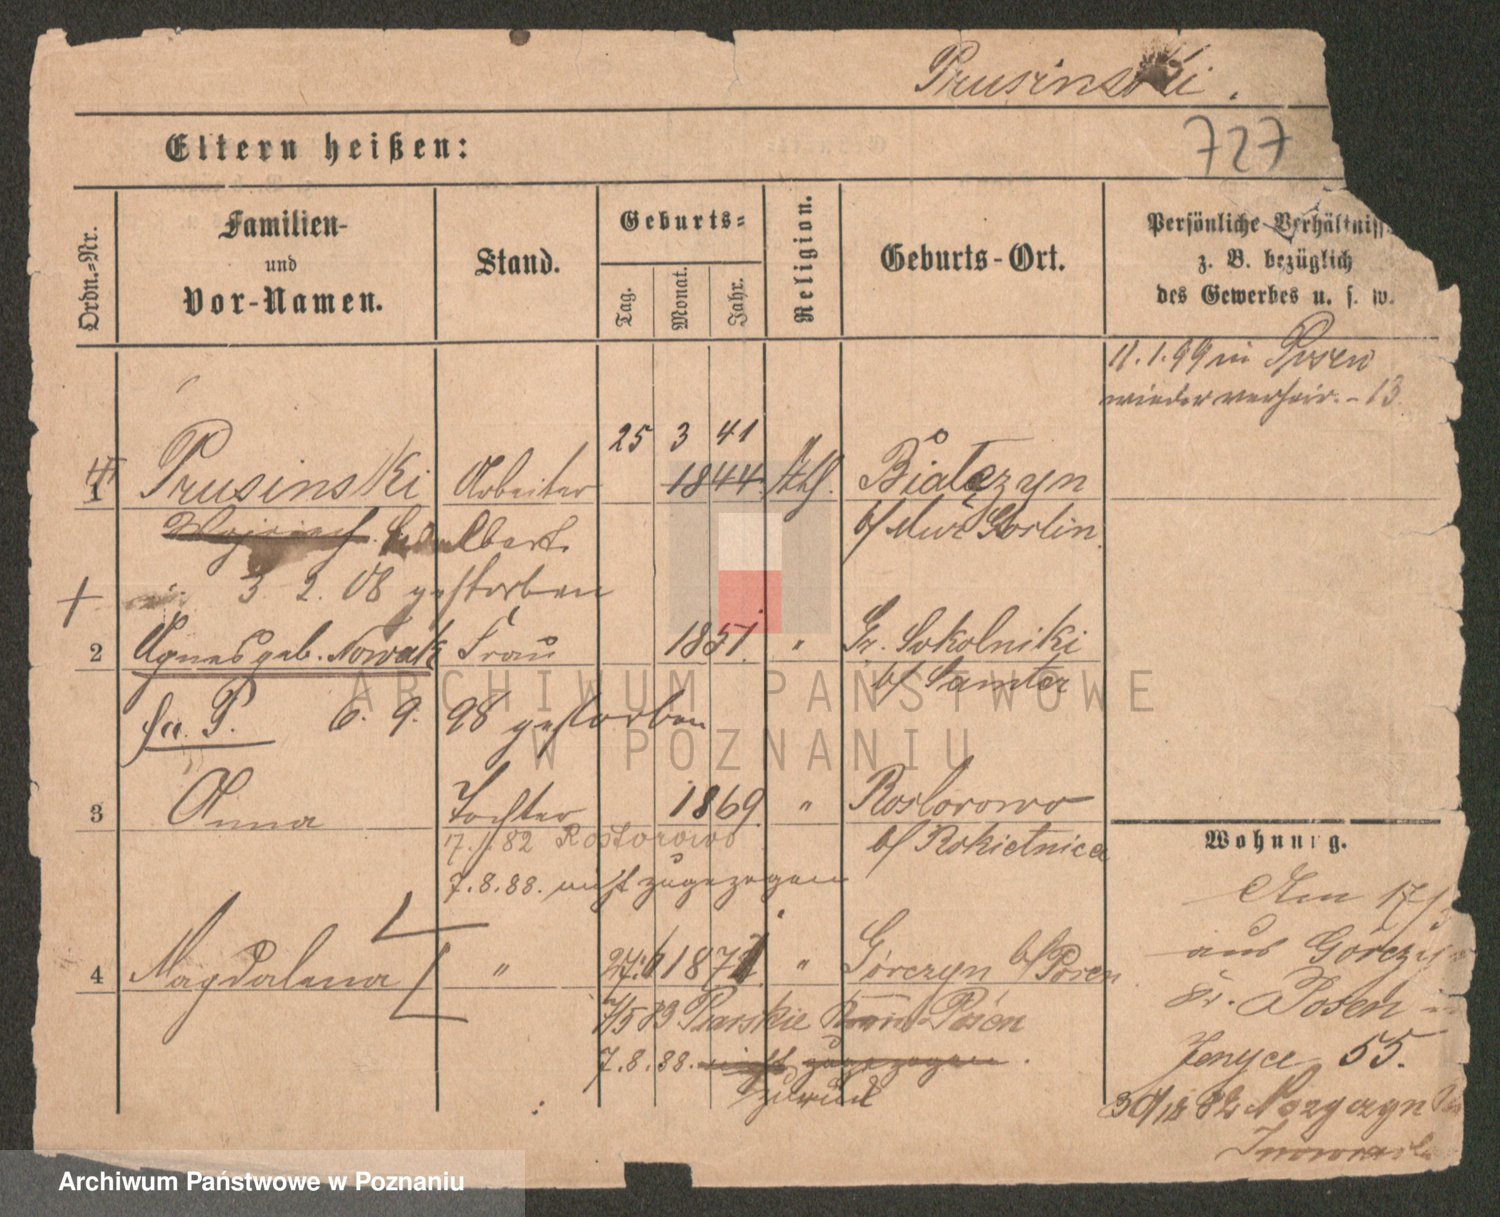 Prusinski.
727
Eltern heißen:
Ordn.-Nr.
Familien-
und
Vor-Namen.
Stand.
Geburts-
Tag.
Monat.
Jahr.
Religion.
Geburts-Ort.
Persönliche Verhältniss
z. B. bezüglich
des Gewerbes u. s. w.
11.1.99 in Posen
wieder verheir. - 13
25 3 41
1 Prusinski Arbeiter 1844 Kth. Białczyn
Adalbert b/ Mur Goslin
3 2. 08 gestorben
2 Agnes geb. Nowak Frau 1851 " Gr. Sokolniki
b/ Samter
6. 9. 98 gestorben
3 Anna Tochter 1869 " Rostorowo
17.1.82 Rostorowo b/ Rokietnica
7.8.88. nicht zugezogen
4 Magdalena " 1872 " Górczyn b/ Posen
7/5 83 Piaskie Posen
7.8.88. nicht zugezogen.
zurück
Wohnung.
Am 17/
aus Górczyn
Kr. Posen in
Jenyce 55.
ARCHIWUM PAŃSTWOWE
W POZNANIU
Archiwum Państwowe w Poznaniu